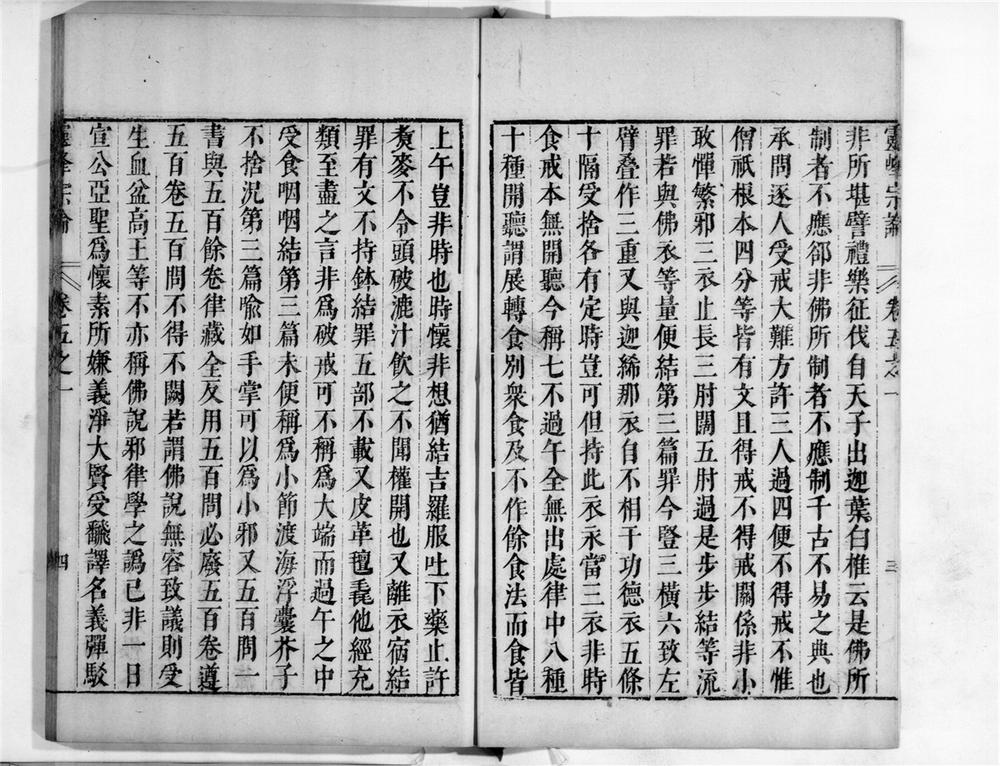 靈峰宗論
卷五之一
三
非所堪譬禮樂征伐自天子出迦葉白椎云是佛所
制者不應卻非佛所制者不應制千古不易之典也
承問逐人受戒大難方許三人過四便不得戒不惟
僧祇根本四分等皆有文且得戒不得戒關係非小
敢憚繁邪三衣止長三肘闊五肘過是步步結等流
罪若與佛衣等量便結第三篇罪今豎三橫六致左
臂叠作三重又與迦絺那衣自不相干功德衣五條
十隔受捨各有定時豈可但持此衣永當三衣非時
食戒本無開聽今稱七不過午全無出處律中八種
十種開聽謂展轉食別衆食及不作餘食法而食皆
上午豈非時也時懷非想猶結吉羅服吐下藥止許
煑麥不令頭破漉汁飲之不聞權開也又離衣宿結
罪有文不持鉢結罪五部不載又皮革氊毳他經充
類至盡之言非爲破戒可不稱爲大端而過午之中
受食咽咽結第三篇未便稱爲小節渡海浮囊芥子
不捨況第三篇喻如手掌可以爲小邪又五百問一
書與五百餘卷律藏全反用五百問必廢五百卷遵
五百卷五百問不得不闕若謂佛說無容致議則受
生血盆高王等不亦稱佛說邪律學之譌已非一日
宣公亞聖爲懷素所嫌義淨大賢受飜譯名義彈駁
靈峰宗論
卷五之一
四